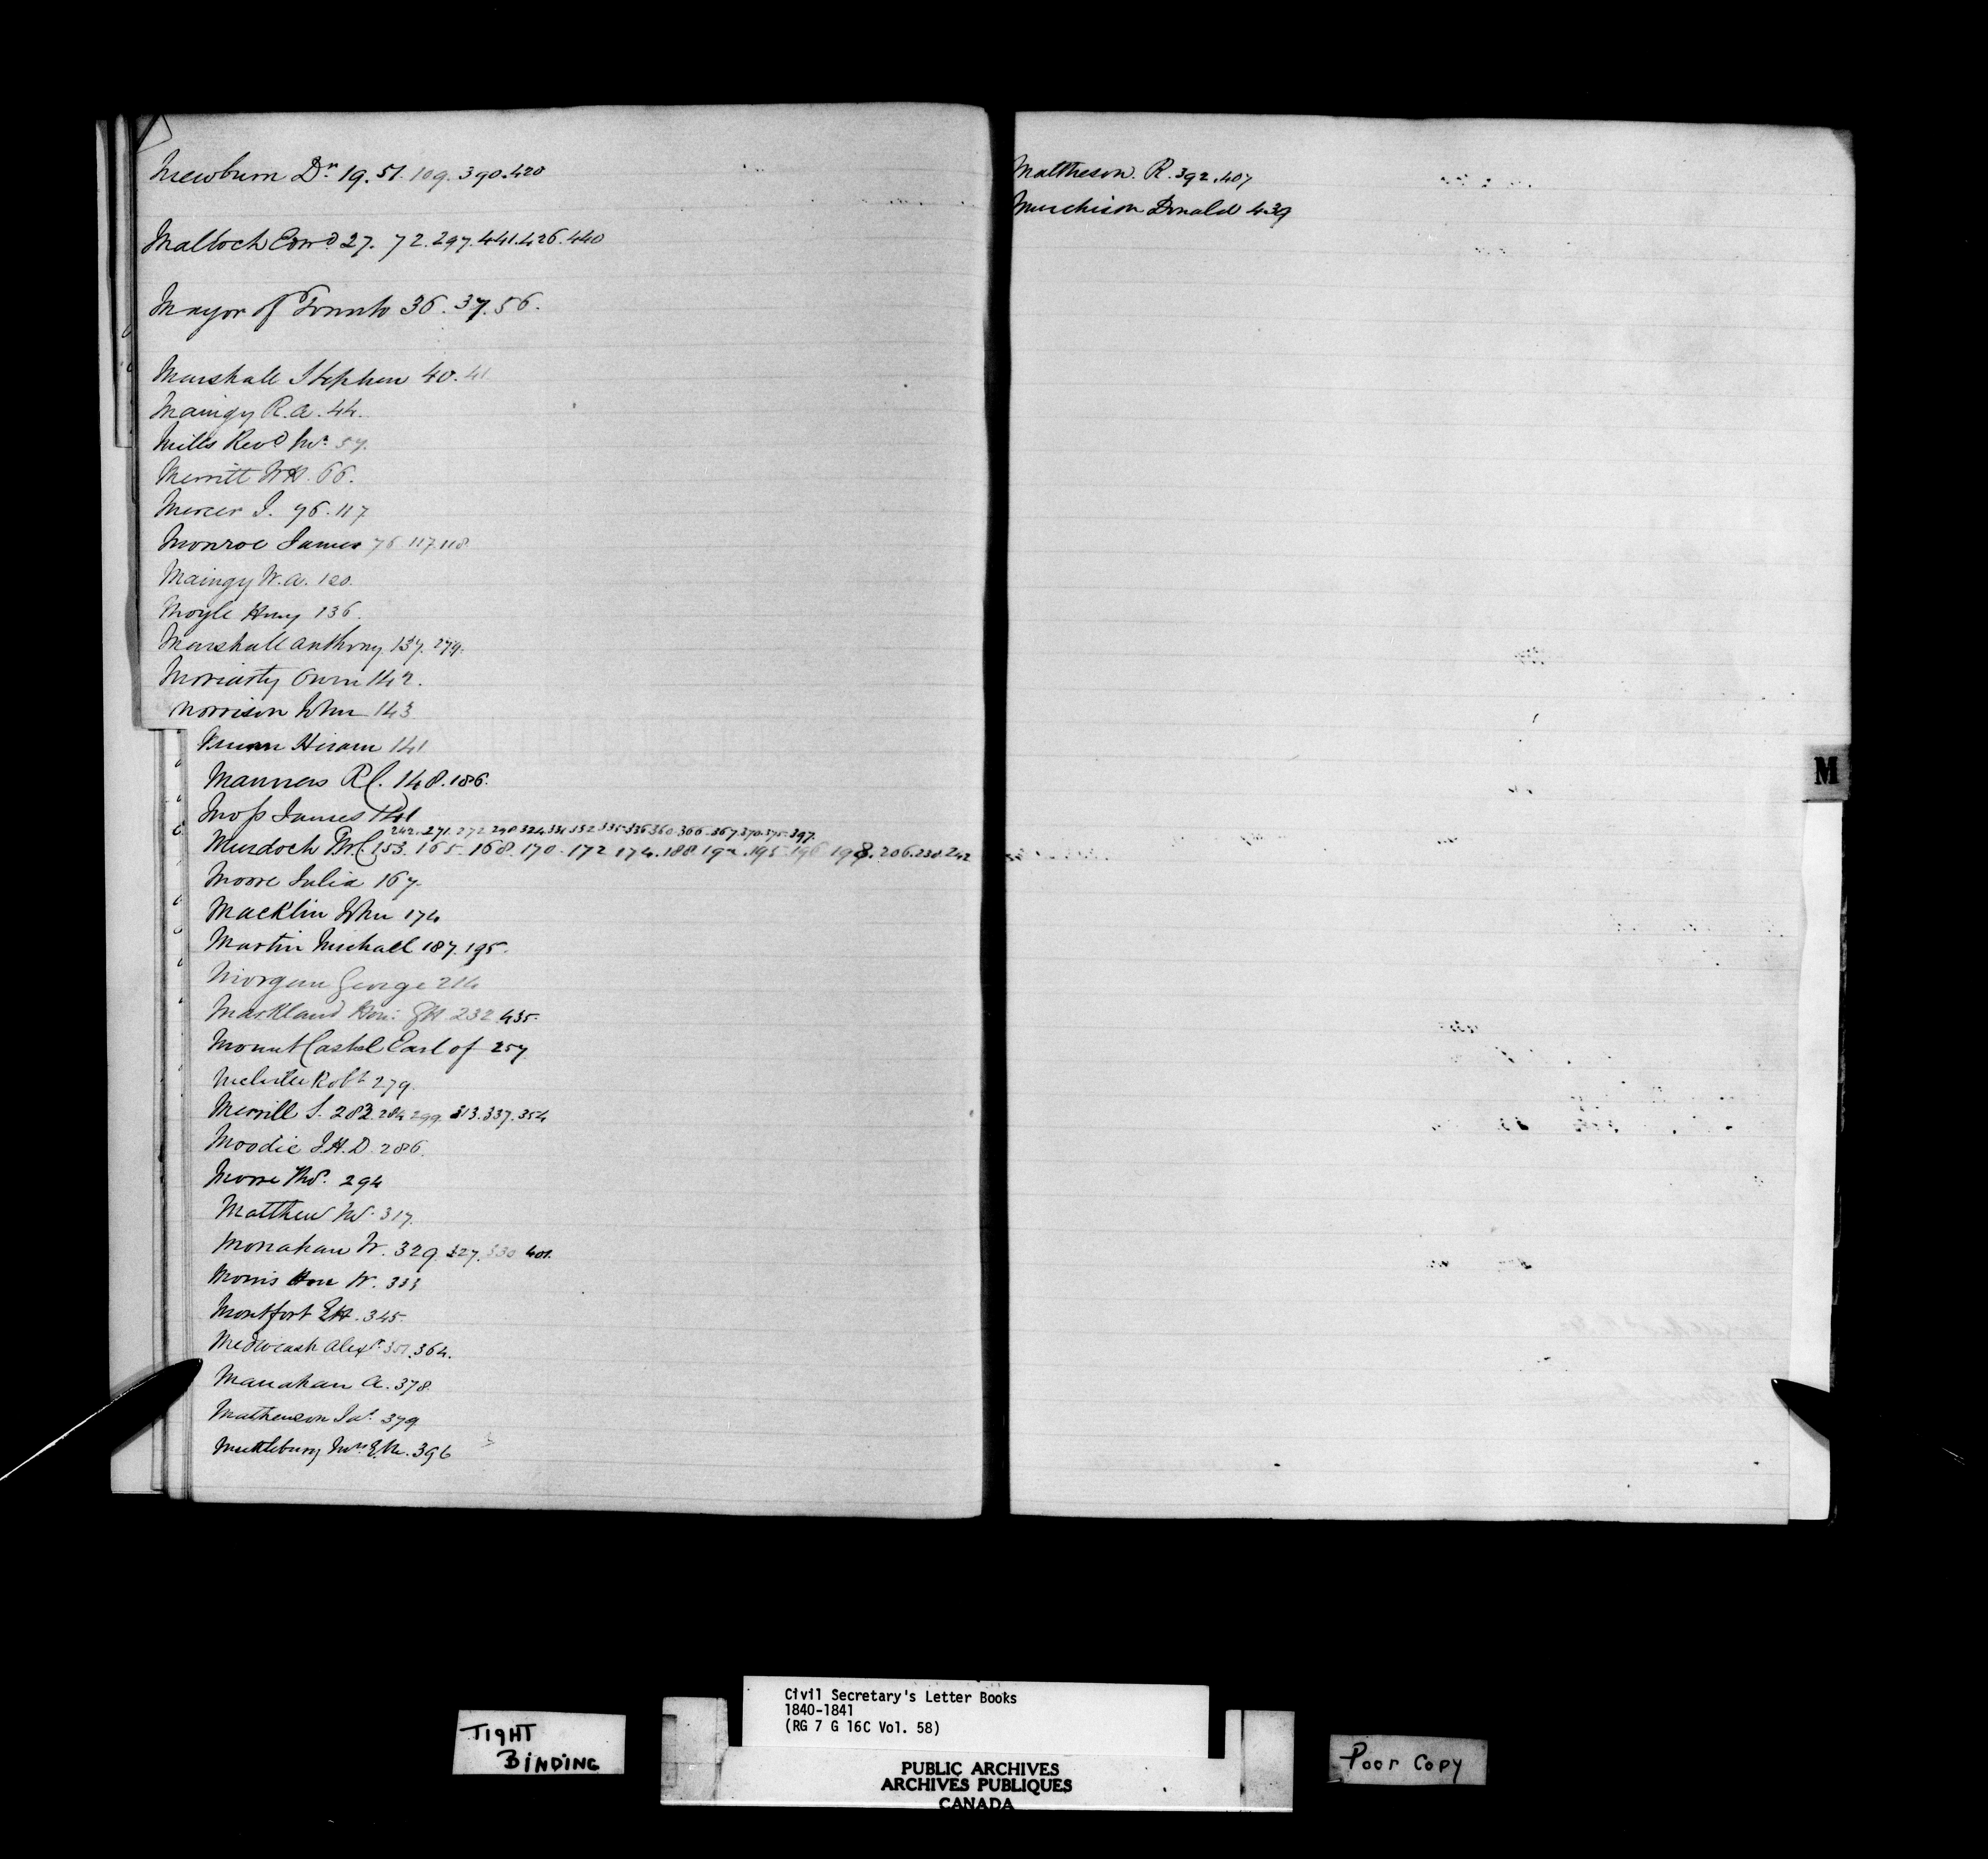 Mewburn Dr. 19. 51. 109. 390. 420
Malloch Edwd 27. 72. 297. 441. 426. 440
Mayor of Toronto 36. 37. 56.
Marshall Stephen 40. 41
Maingy R. A. 44.
Mills Revd Mr. 57.
Merritt W H. 66.
Mercer J. 96. 117
Monroe James 76 117 118
Maingy W. A. 120.
Moyle Henry 136.
Marshall Anthony. 137. 279.
Moriarty Owen 142.
Morrison John 143
Hiram 141
Manners R C. 148. 186.
Moss James 141
242. 271. 272 290 324 331 332 335. 336 360. 366. 367. 370. 375. 397.
Murdoch T W C 153. 165. 168. 170. 172 174. 188. 192. 195. 196 198. 206. 230. 242
Moore Julia 167.
Macklin John 174
Martin Michael 187. 195.
Morgan George 214
Markland Hon: G H 232. 435.
Mount Cashel Earl of 257
Melville Robt 279.
Merrill S. 283. 284 299. 313. 337. 354
Moodie J. H. D. 286.
Moore Thos. 294
Matthew M. 317.
Monahan W. 329. 327. 330 401.
Morris Hon W. 333
Montfort E H. 345.
Medwcash Alexr. 351. 364.
Manahan A. 378.
Matheuson Jas. 379
Muttlebury Mrs E. M. 396
Mattheson. R. 392. 407
Murchison Donald 439
M
TIGHT
BINDING
Civil Secretary's Letter Books
1840-1841
(RG 7 G 16C Vol. 58)
PUBLIC ARCHIVES
ARCHIVES PUBLIQUES
CANADA
Poor Copy